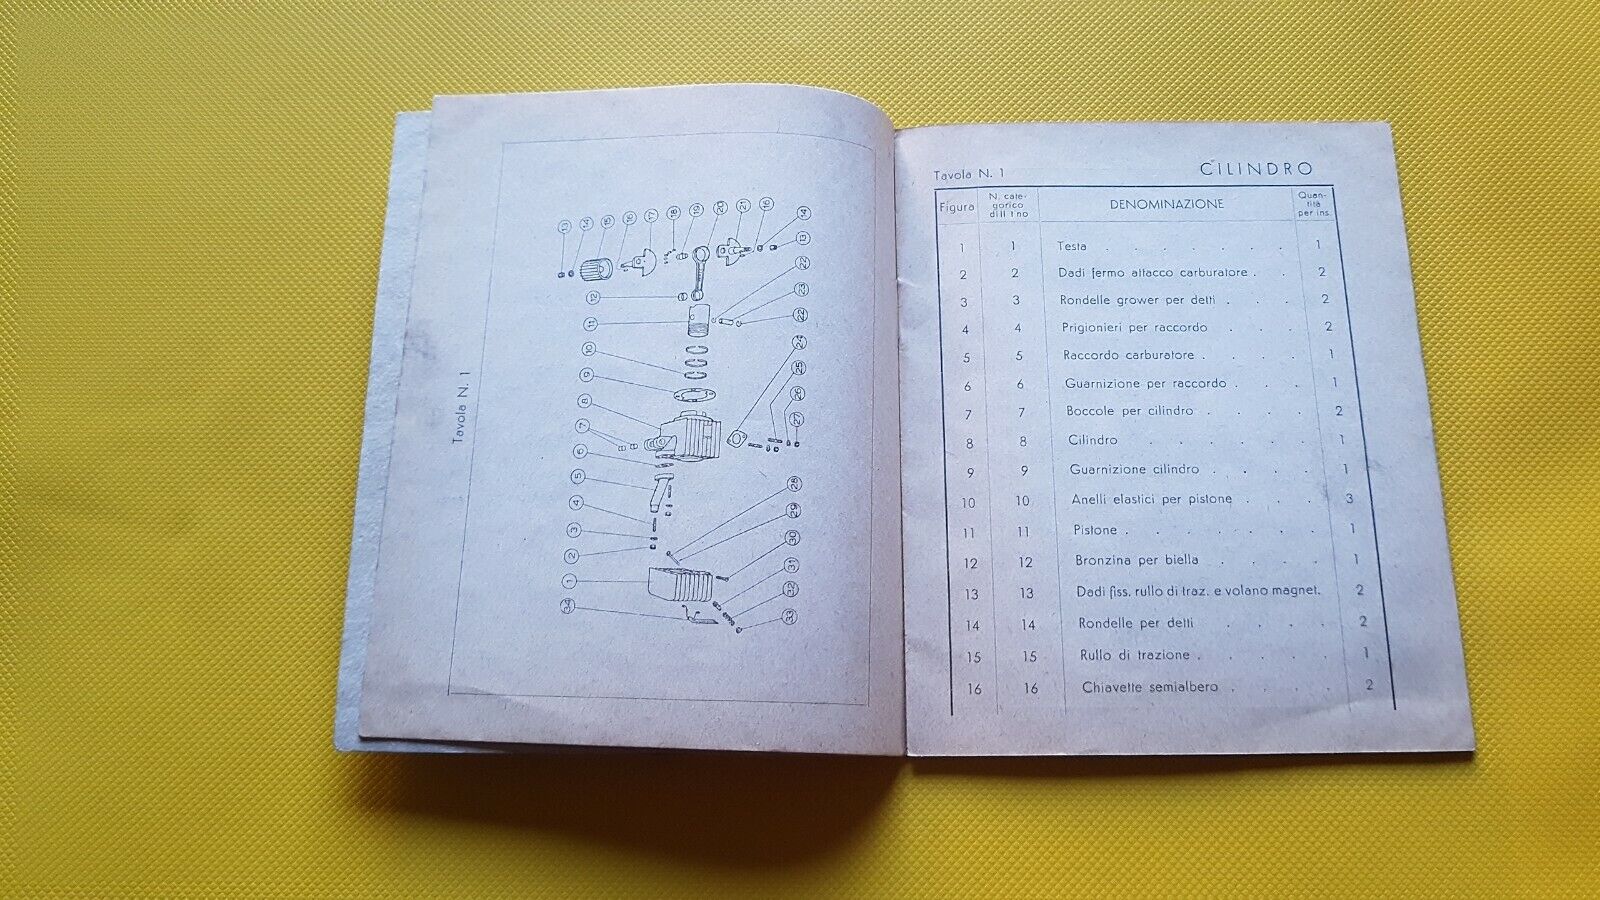 Tavola N. 1
13 14 15 16 17 18 19 20 21 16 14 13
12 22
11 23
10 22
9 24
8 25
7 26
6 27
5 28
4 29
3 30
2 31
1 32
34 33
Tavola N. 1 CILINDRO
Figura N. cate- DENOMINAZIONE Quan-
gorico tità
per ins.
1 1 Testa . . . . . . . 1
2 2 Dadi fermo attacco carburatore . . 2
3 3 Rondelle grower per detti . . . 2
4 4 Prigionieri per raccordo . . . 2
5 5 Raccordo carburatore . . . . 1
6 6 Guarnizione per raccordo . . . 1
7 7 Boccole per cilindro . . . . 2
8 8 Cilindro . . . . . . 1
9 9 Guarnizione cilindro . . . . 1
10 10 Anelli elastici per pistone . . . 3
11 11 Pistone . . . . . . . 1
12 12 Bronzina per biella . . . . 1
13 13 Dadi fiss. rullo di traz. e volano magnet. 2
14 14 Rondelle per detti . . . . 2
15 15 Rullo di trazione . . . . . 1
16 16 Chiavette semialbero . . . . 2